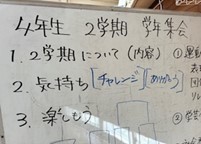 4年生 2学期 学年集会
1. 2学期について(内容)
2. 気持ち [チャレンジ] [ありがとう]
3. 楽しもう
① 運動
② 学芸